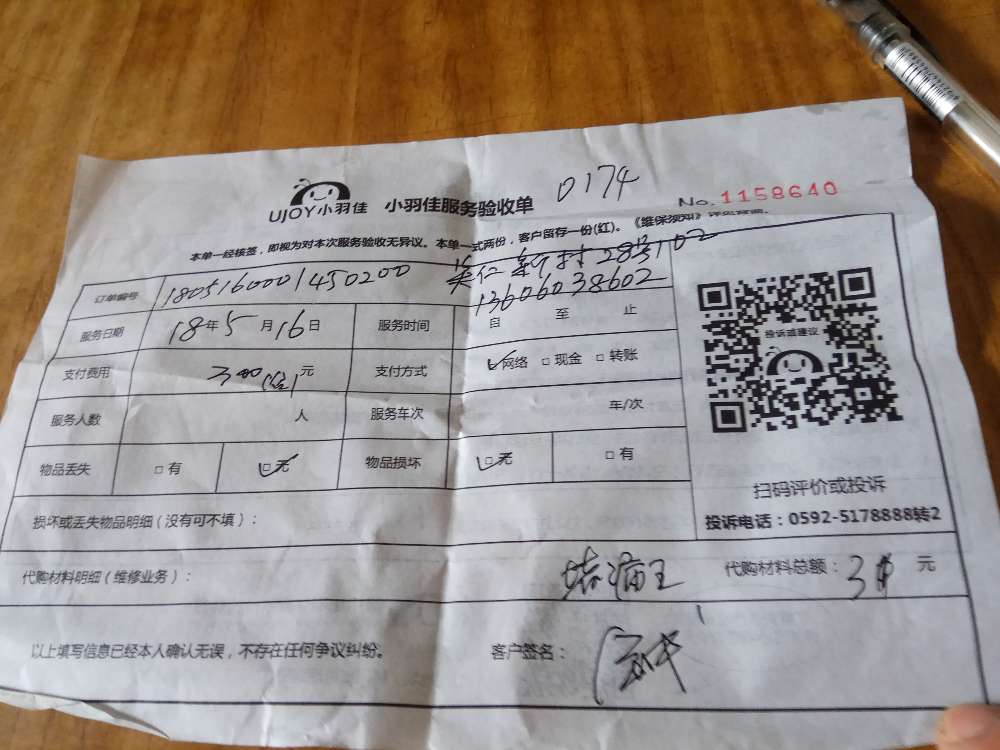 UJOY小羽佳 小羽佳服务验收单 0174 No. 1158640
本单一经核签，即视为对本次服务验收无异议。本单一式两份，客户留存一份(红)。《维保须知》
订单编号 1805160001450200 新村28号102
13606038602
服务日期 18年5月16日 服务时间 自 至 止
支付费用 300 元 支付方式 网络 □ 现金 □ 转账
服务人数 人 服务车次 车/次
物品丢失 □ 有 □ 无 物品损坏 □ 无 □ 有
损坏或丢失物品明细（没有可不填）：
代购材料明细（维修业务）： 堵漏王 代购材料总额： 元
以上填写信息已经本人确认无误，不存在任何争议纠纷。 客户签名：
投诉或建议
扫码评价或投诉
投诉电话：0592-5178888转2